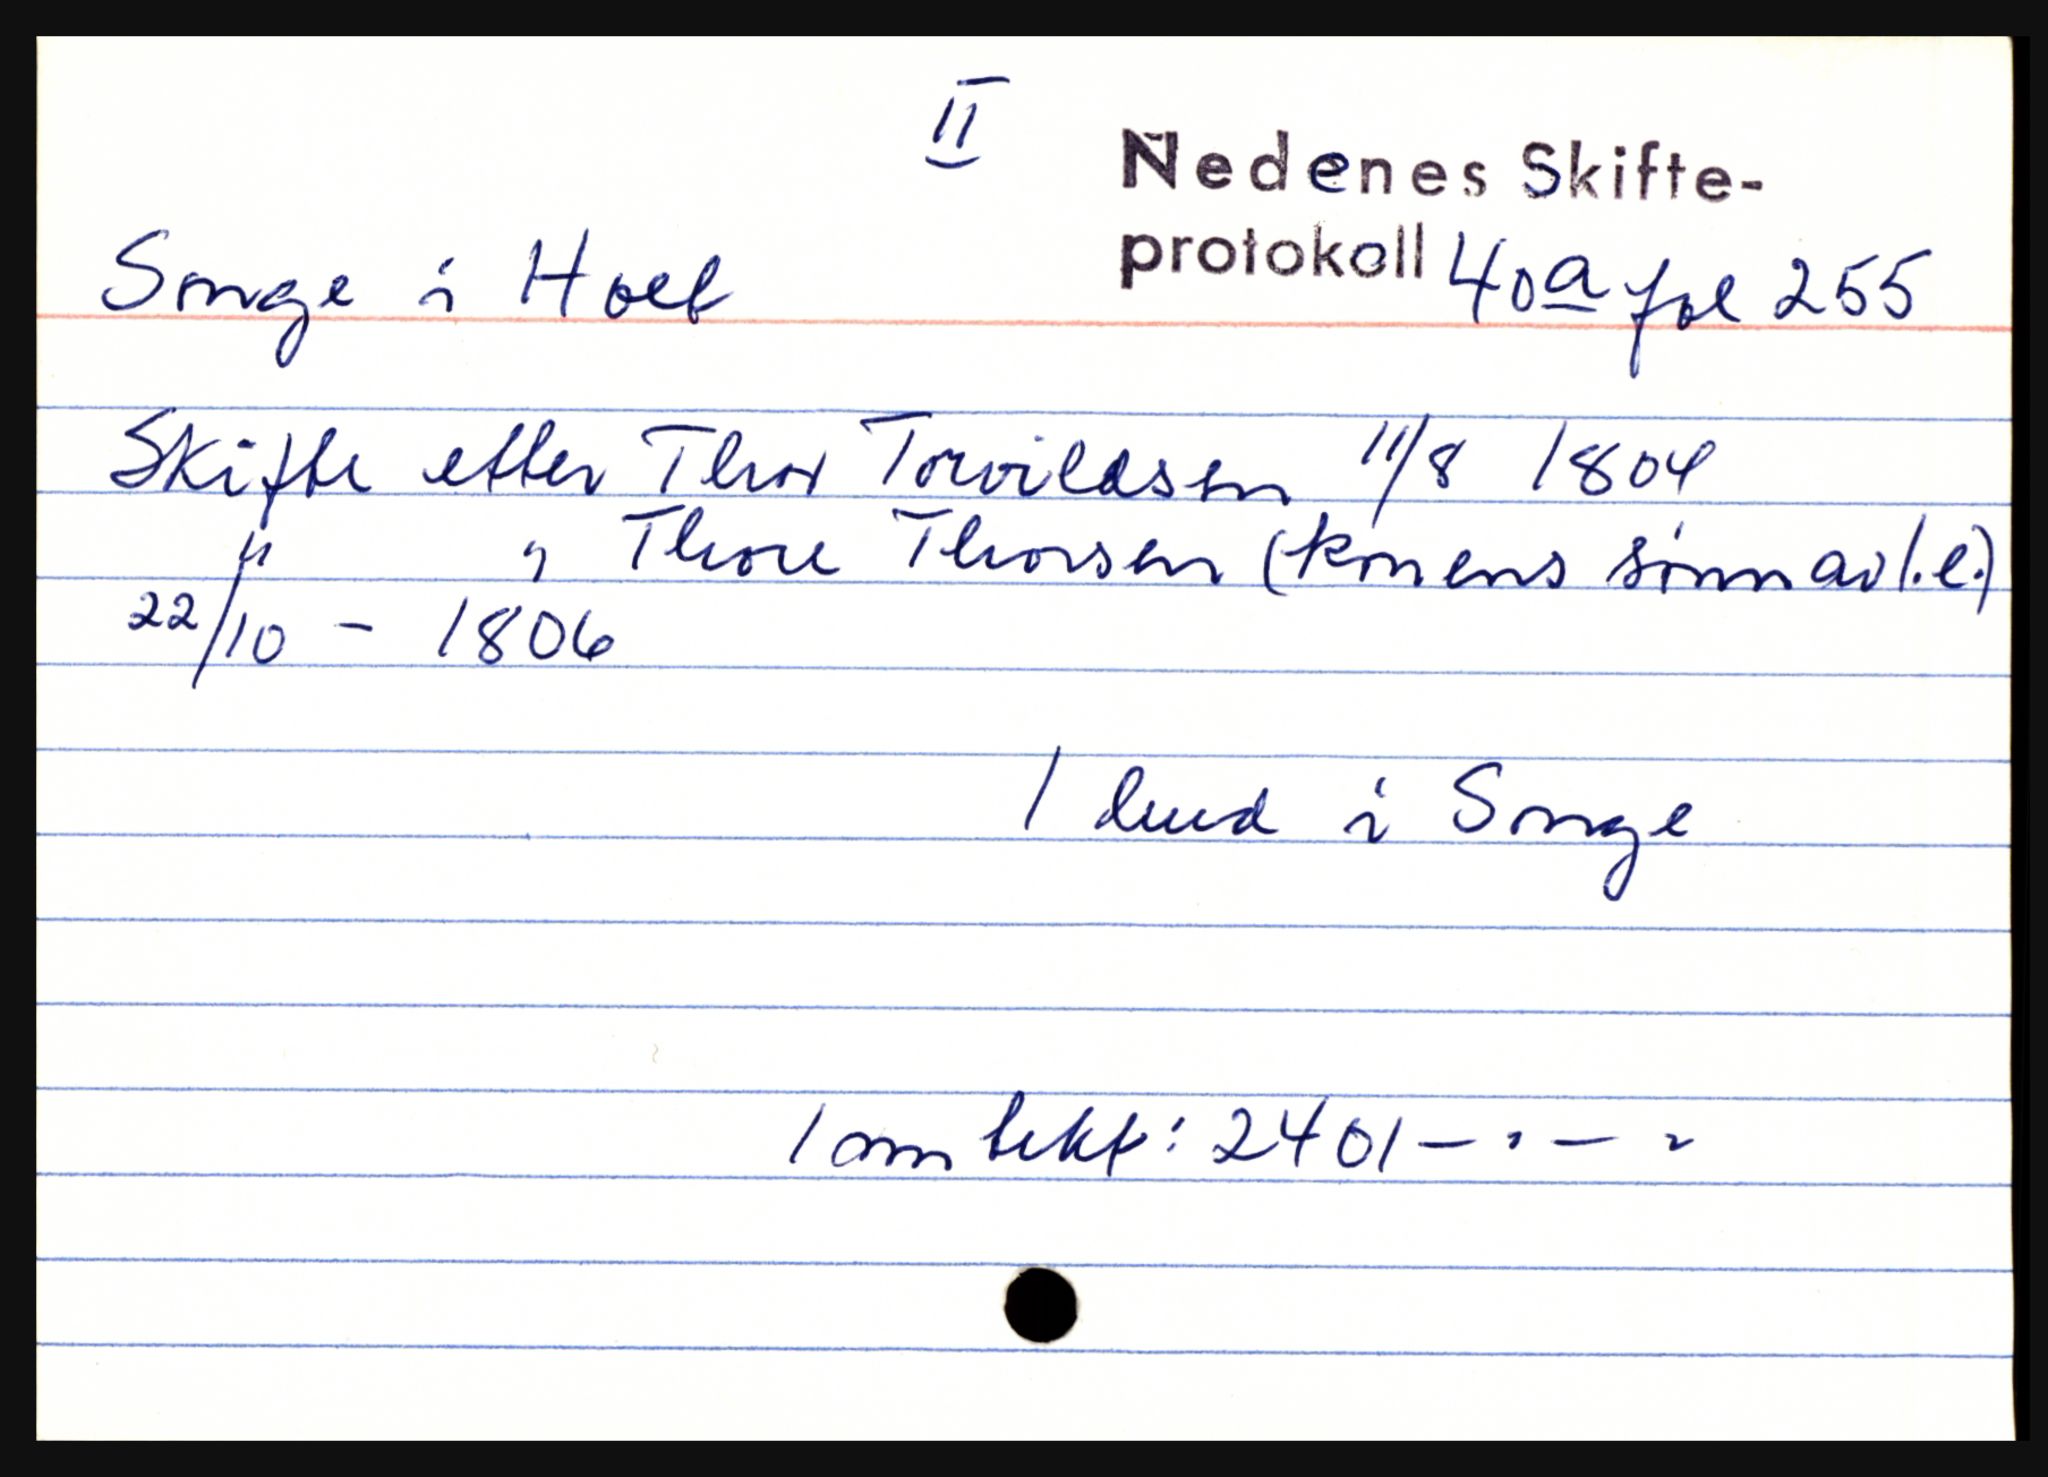 II
Nedenes Skifte-
protokoll 40a fol 255
Songe i Holt
Skifte etter Thor Torvildsen 11/8 1804
" " Thore Thorsen (konens sønn av 1.e.)
22/10 - 1806
1 hud i Songe
1 om bekf: 2401 - " - "